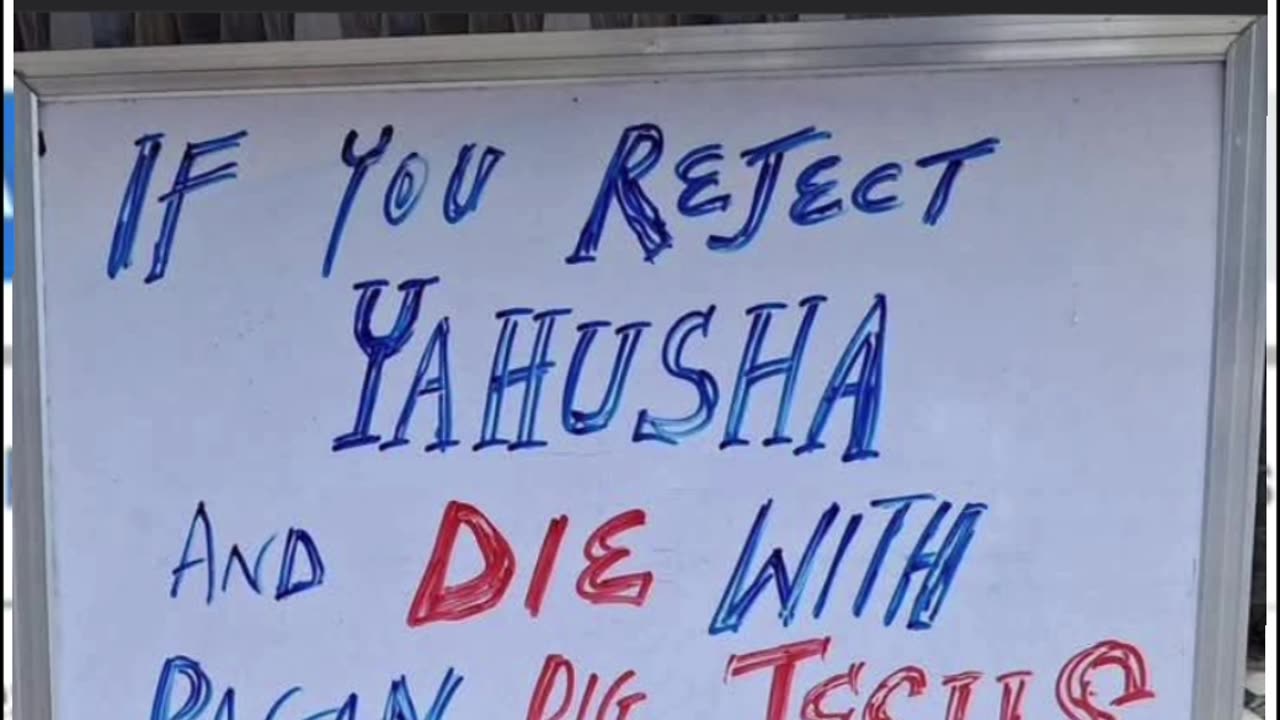 IF YOU REJECT
YAHUSHA
AND DIE WITH
PAGAN PIG JESUS